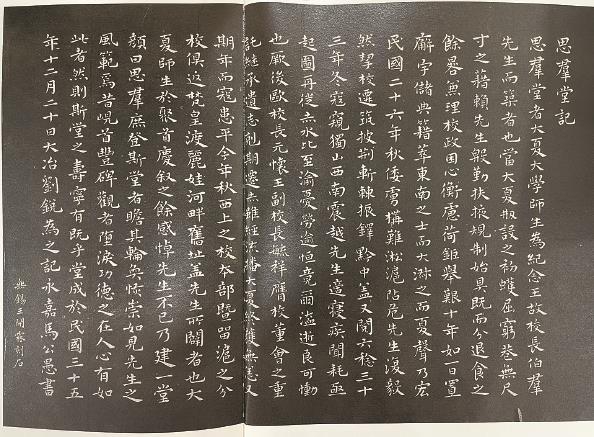 思羣堂記
思羣堂者大夏大學師生為紀念王故校長伯羣
先生而築者也當大夏刱設之初蠖屈窮巷無尺
寸之藉賴先生殷勤扶掖規制始具既而分退食之
餘晷兼理校政困心衡慮荷鉅舉艱十年如一日置
廨宇儲典籍萃東南之士而大淑之而夏聲乃宏
民國二十六年秋倭虜構難淞滬阽危先生復毅
然挈校遷筑披荆斬棘振鐸黔中蓋又閱六稔三十
三年冬寇窺獨山西南震越先生適寢疾聞耗亟
起圖再徙赤水比至渝憂勞逾恒竟爾溘逝良可慟
也厥後歐校長元懷王副校長毓祥膺校董會之重
託繼承遺志剋期遷赤雖經
期年而寇患平今年秋西上之校本部暨留滬之分
校俱返梵皇渡麗娃河畔舊址蓋先生所闢者也大
夏師生於聚首慶敘之餘感悼先生不已乃建一堂
顏曰思羣庶登斯堂者瞻其輪奐恢崇如見先生之
風範焉昔峴首豐碑觀者墮淚功德之在人心有如
此者然則斯堂之壽寧有既乎堂成於民國三十五
年十二月二十日大冶劉銳為之記永嘉馬公愚書
無錫王開霖刻石